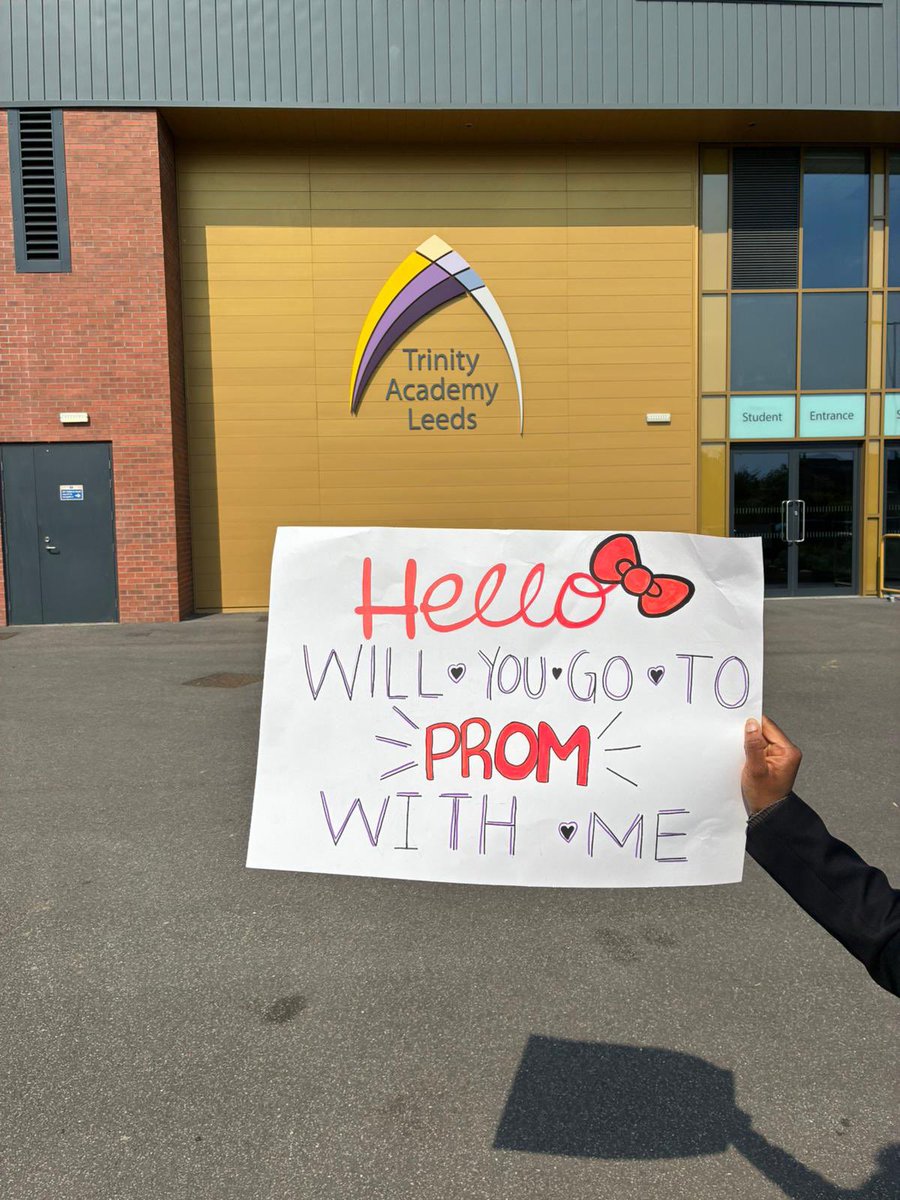 Trinity
Academy
Leeds
Student Entrance
Hello
WILL YOU GO TO
PROM
WITH ME